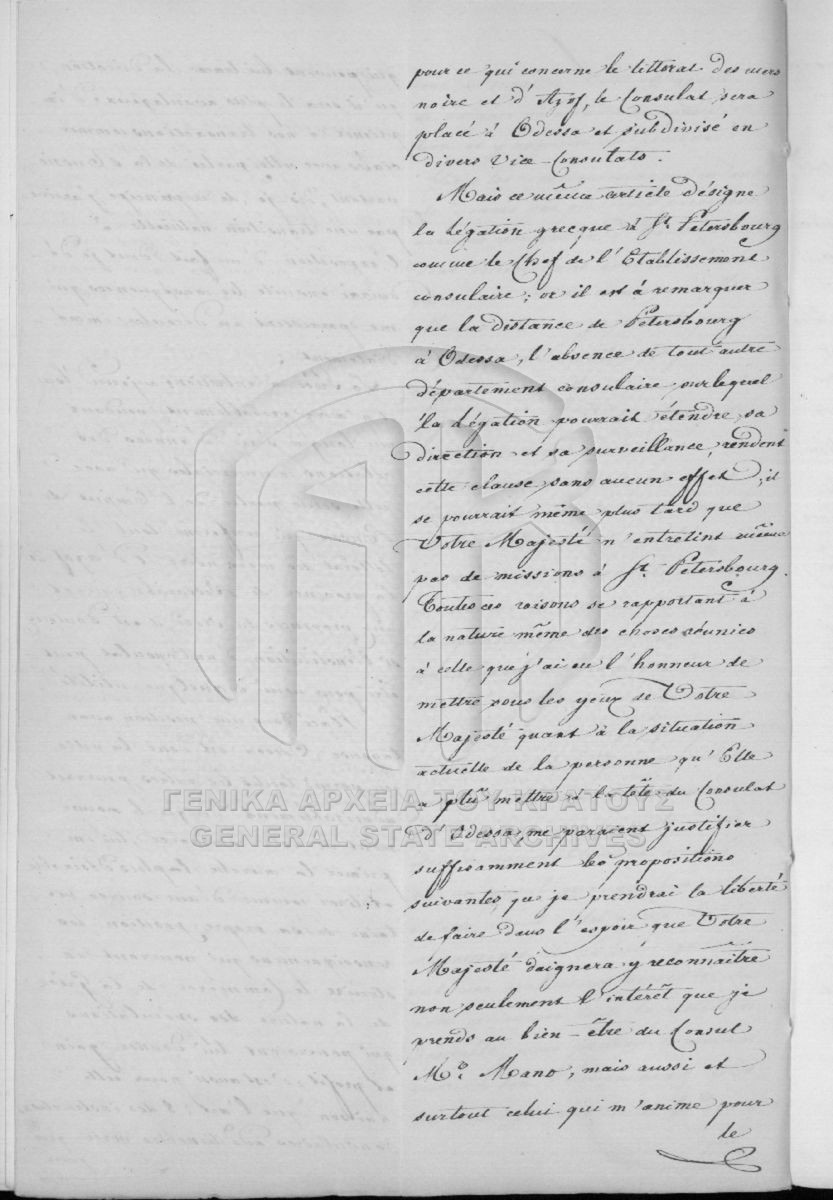 pour ce qui concerne le littoral des mers
noire et d'Azof, le Consulat sera
placé à Odessa et subdivisé en
divers Vice-Consulats.
Mais ce même article désigne
la Légation grecque à St. Petersbourg
comme le Chef de l'Etablissement
consulaire; or il est à remarquer
que la distance de Petersbourg
à Odessa, l'absence de tout autre
département consulaire sur lequel
la Légation pourrait étendre sa
direction et sa surveillance, rendent
cette clause sans aucun effet, il
se pourrait même plus tard que
Votre Majesté n'entretint même
pas de missions à St. Petersbourg.
Toutes ces raisons se rapportant à
la nature même des choses réunies
à celle que j'ai eu l'honneur de
mettre sous les yeux de Votre
Majesté quant à la situation
actuelle de la personne qu'Elle
a plû mettre à la tête du Consulat
d'Odessa, me paraient justifier
suffisamment les propositions
suivantes, que je prendrai la liberté
de faire dans l'espoir que Votre
Majesté daignera y reconnaître
non seulement l'intérêt que je
prends au bien-être du Consul
Mr. Mano, mais aussi et
surtout celui qui m'anime pour
le
ΓΕΝΙΚΑ ΑΡΧΕΙΑ ΤΟΥ ΚΡΑΤΟΥΣ
GENERAL STATE ARCHIVES